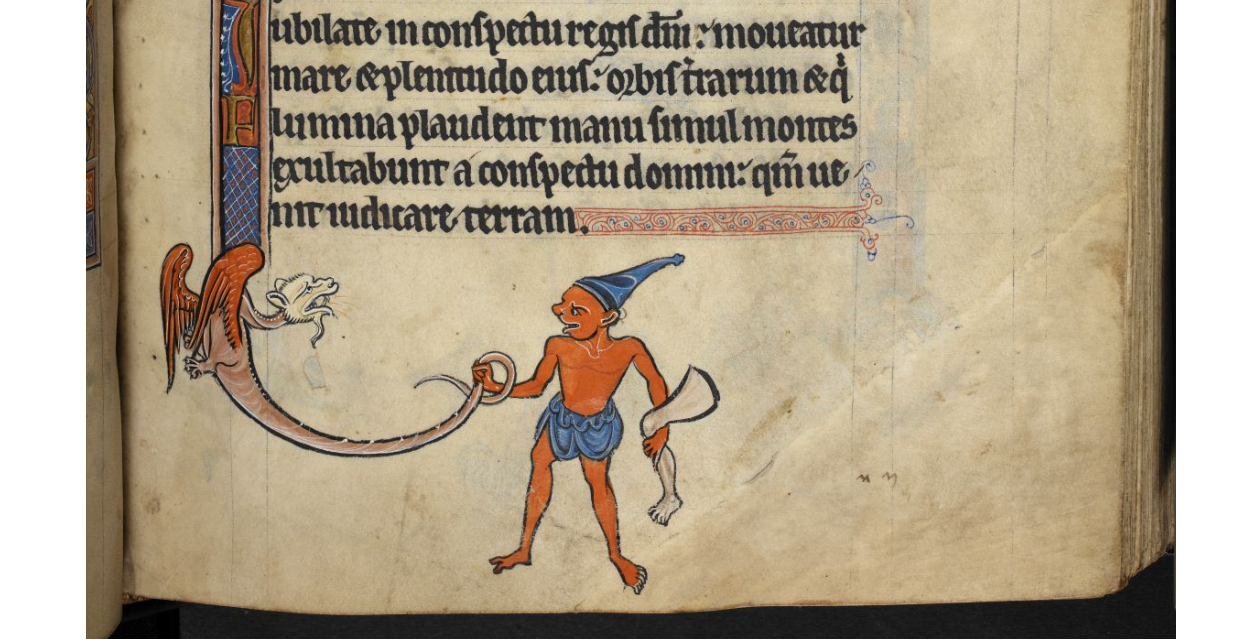 Iubilate in conspectu regis dn̄i: moueatur
mare & plenitudo eius: orbis t̄rarum & qͥ
Flumina plaudent manu simul montes
exultabunt a conspectu domini: qm̄ ue
nit iudicare terram.